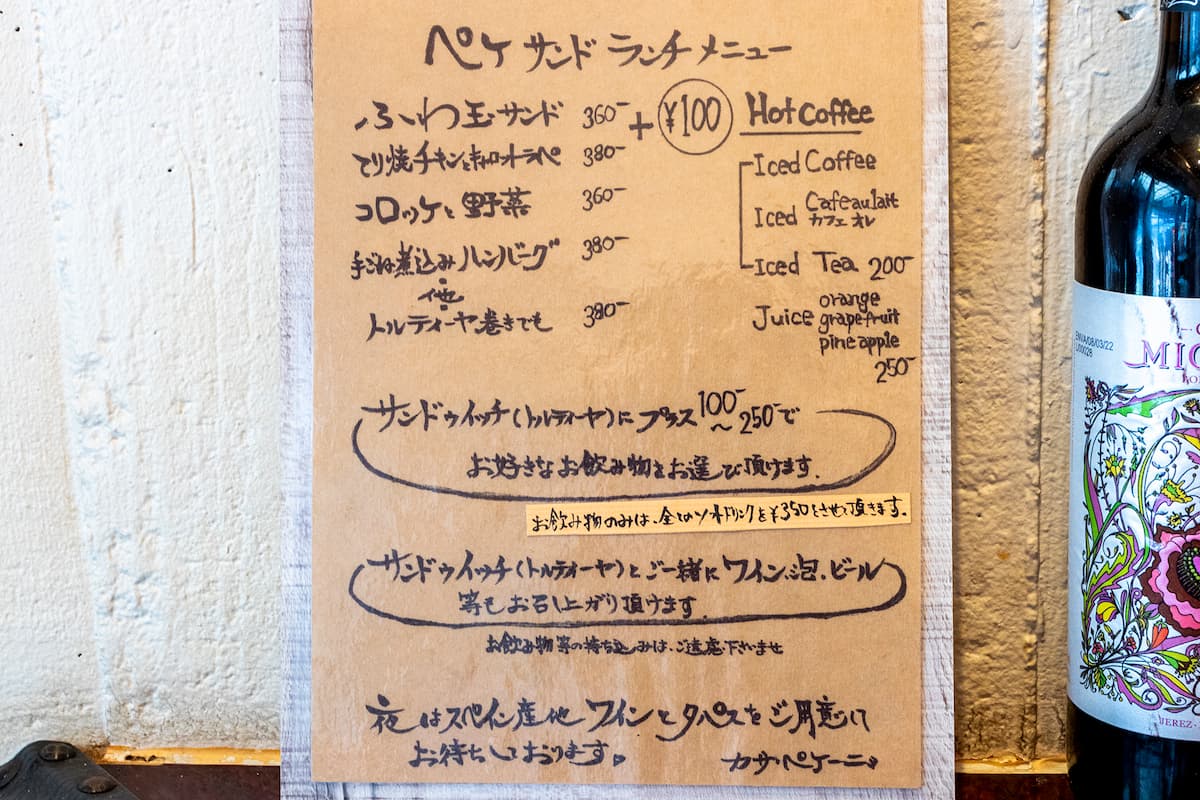 ペケサンドランチメニュー
ふわ玉サンド 360- + ¥100 Hot Coffee
てり焼チキンとキャロットラペ 380-
Iced Coffee
コロッケと野菜 360-
Iced Cafe au lait
カフェオレ
手ごね煮込みハンバーグ 380-
Iced Tea 200-
・他・
トルティーヤ巻きでも 380-
Juice orange
grapefruit
pineapple
250-
サンドゥイッチ(トルティーヤ)にプラス100-~250-で
お好きなお飲み物をお選び頂けます.
お飲み物のみは、全てのソフトドリンクを¥350とさせて頂きます.
サンドゥイッチ(トルティーヤ)とご一緒にワイン、泡、ビール
等もお召し上がり頂けます.
お飲み物等の持ち込みは、ご遠慮下さいませ
夜はスペイン産地ワインとタパスをご用意して
お待ちしております。
カサ・ペケーニョ
ENVA/08/03/22
L00028
JEREZ